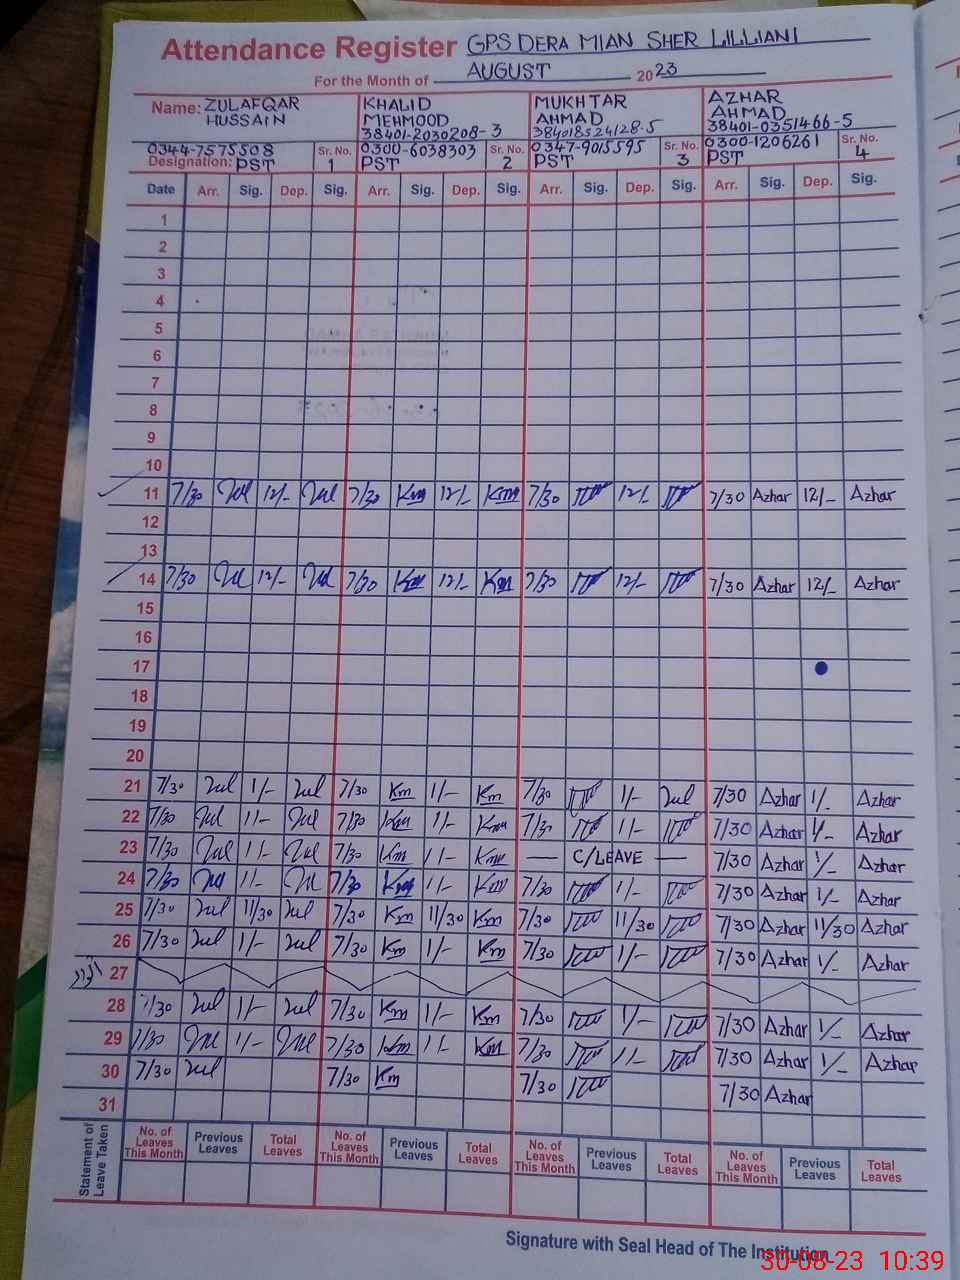 Attendance Register GPS DERA MIAN SHER LILLIANI
For the Month of AUGUST 2023
Name: ZULAFQAR HUSSAIN
0344-7575508
Designation: PST Sr. No. 1
KHALID MEHMOOD
38401-2030208-3
0300-6038303
PST Sr. No. 2
MUKHTAR AHMAD
384018524128-5
0347-9015595
PST Sr. No. 3
AZHAR AHMAD
38401-0351466-5
0300-1206261
PST Sr. No. 4
Date Arr. Sig. Dep. Sig. Arr. Sig. Dep. Sig. Arr. Sig. Dep. Sig. Arr. Sig. Dep. Sig.
1
2
3
4
5
6
7
8
9
10
11 7/30 12/- 7/30 Km 12/- Km 7/30 12/- 7/30 Azhar 12/- Azhar
12
13
14 7/30 12/- 7/30 Km 12/- Km 7/30 12/- 7/30 Azhar 12/- Azhar
15
16
17
18
19
20
21 7/30 Zul 1/- Zul 7/30 Km 1/- Km 7/30 1/- Zul 7/30 Azhar 1/- Azhar
22 7/30 Zul 1/- Zul 7/30 Km 1/- Km 7/30 1/- 7/30 Azhar 1/- Azhar
23 7/30 Zul 1/- Zul 7/30 Km 1/- Km C/LEAVE 7/30 Azhar 1/- Azhar
24 7/30 Zul 1/- Zul 7/30 Km 1/- Km 7/30 1/- 7/30 Azhar 1/- Azhar
25 7/30 Zul 11/30 Zul 7/30 Km 11/30 Km 7/30 11/30 7/30 Azhar 11/30 Azhar
26 7/30 Zul 1/- Zul 7/30 Km 1/- Km 7/30 1/- 7/30 Azhar 1/- Azhar
27
28 7/30 Zul 1/- Zul 7/30 Km 1/- Km 7/30 1/- 7/30 Azhar 1/- Azhar
29 7/30 Zul 1/- Zul 7/30 Km 1/- Km 7/30 1/- 7/30 Azhar 1/- Azhar
30 7/30 Zul 7/30 Km 7/30 7/30 Azhar
31
Statement of Leave Taken
No. of Leaves This Month Previous Leaves Total Leaves No. of Leaves This Month Previous Leaves Total Leaves No. of Leaves This Month Previous Leaves Total Leaves No. of Leaves This Month Previous Leaves Total Leaves
Signature with Seal Head of The Institution
30-08-23 10:39